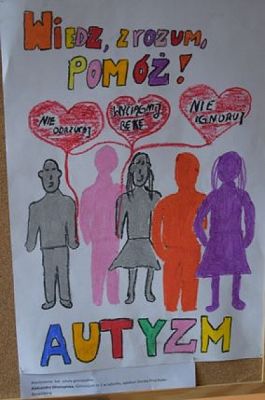 WIEDZ, ZROZUM,
POMÓŻ!
NIE
ODRZUCAJ
WYCIĄGNIJ
RĘKĘ
NIE
IGNORUJ
AUTYZM